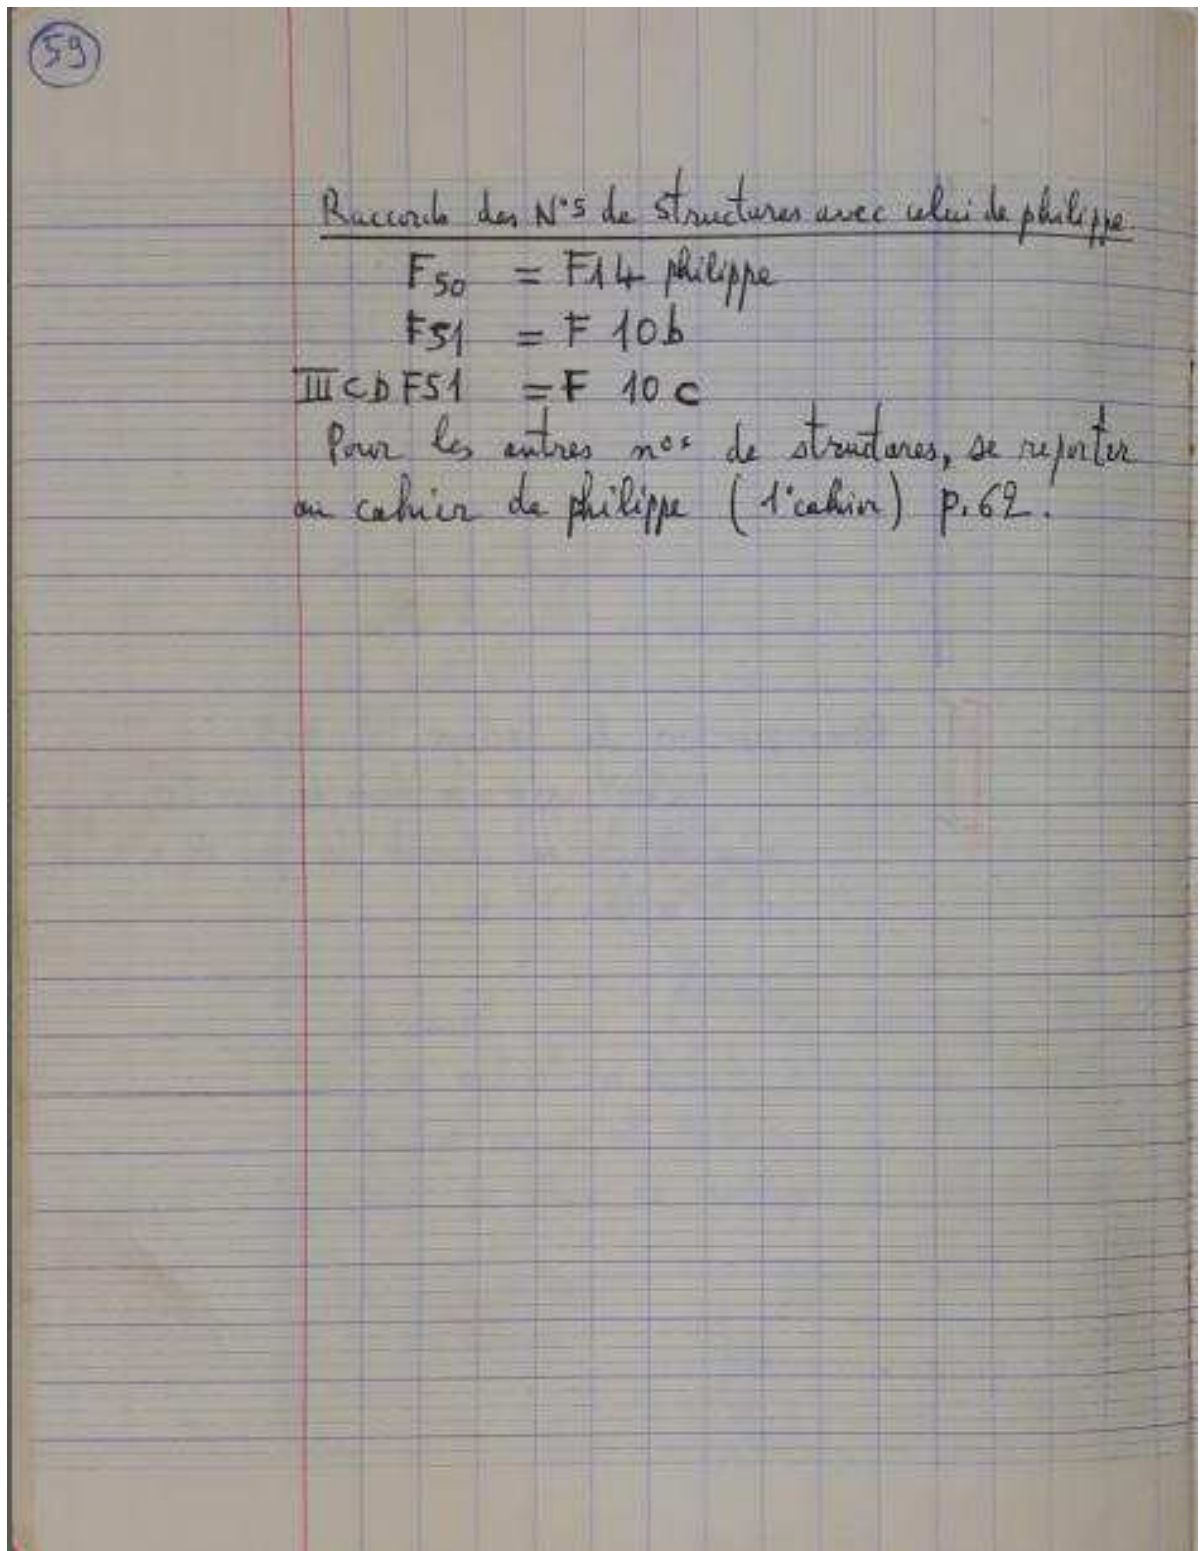 59
Raccords des N°s de structures avec celui de philippe.
F50 = F14 philippe
F51 = F 10b
III CD F51 = F 10 c
Pour les autres nos de structures, se reporter
au cahier de philippe (1° cahier) p.62.